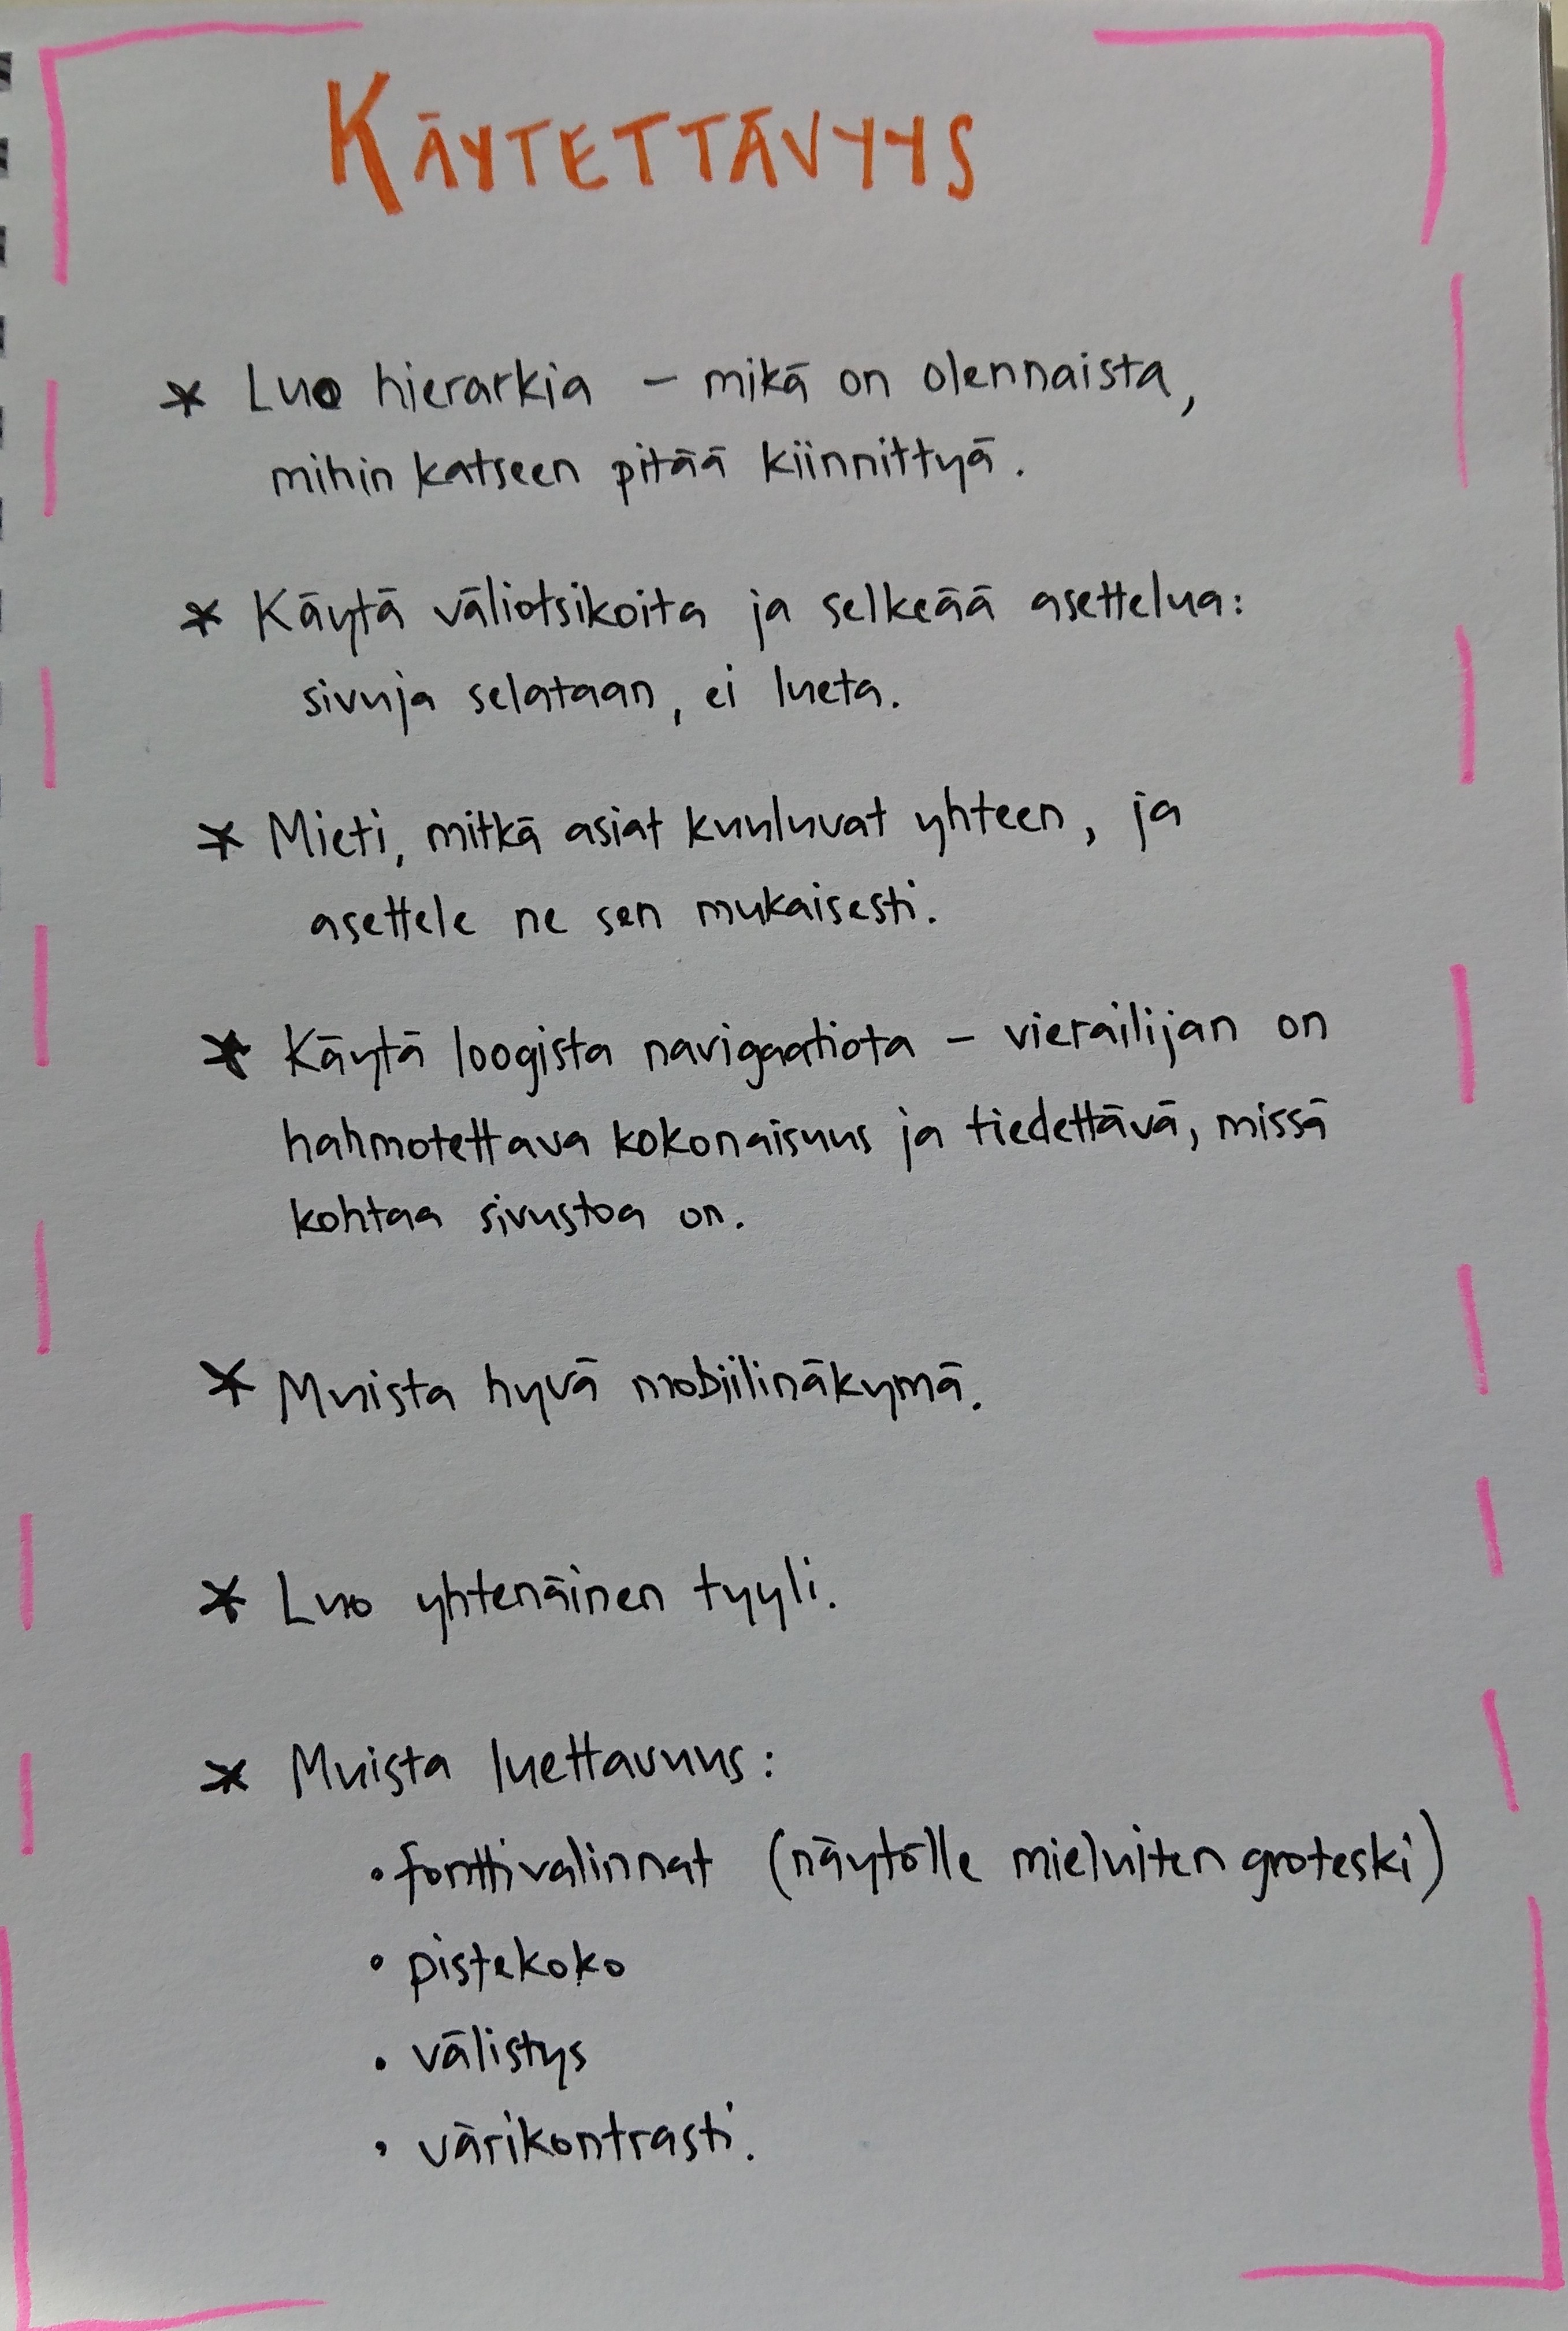 KÄYTETTÄVYYS
* Luo hierarkia – mikä on olennaista,
mihin katseen pitää kiinnittyä.
* Käytä väliotsikoita ja selkeää asettelua:
sivuja selataan, ei lueta.
* Mieti, mitkä asiat kuuluvat yhteen, ja
asettele ne sen mukaisesti.
* Käytä loogista navigaatiota – vierailijan on
hahmotettava kokonaisuus ja tiedettävä, missä
kohtaa sivustoa on.
* Muista hyvä mobiilinäkymä.
* Luo yhtenäinen tyyli.
* Muista luettavuus:
• fonttivalinnat (näytölle mieluiten groteski)
• pistekoko
• välistys
• värikontrasti.